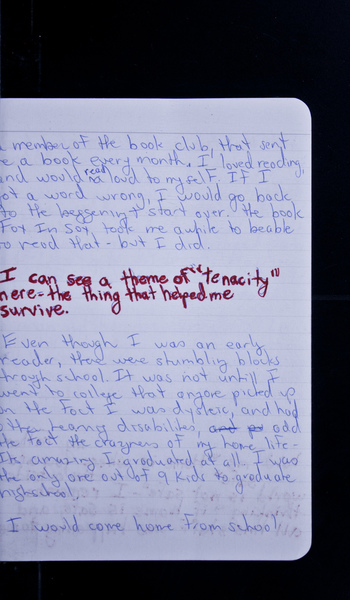 a member of the book club, that sent
e a book every month. I loved reading,
and would read loud to myself. If I
ot a word wrong, I would go back
to the beggening & start over. the book
Fox In Sox, took me awhile to beable
to read that - but I did.
I can see a theme of "tenacity"
here - the thing that helped me
survive.
Even though I was an early
reader, there were stumbling blocks
through school. It was not untill I
went to college that anyone picked up
on the fact I was dyslexic, and had
other learning disabilites, and add
the fact the crazyness of my home life -
Its amazing I graduated at all. I was
the only one out of 9 kids to graduate
highschool.
I would come home from school